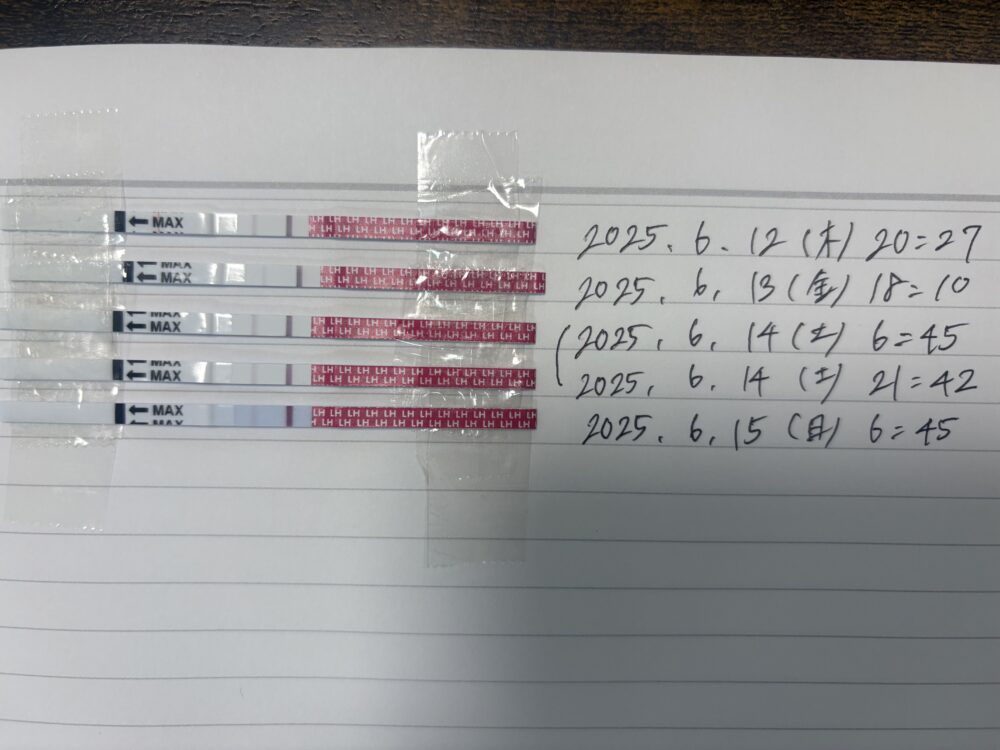 MAX LH LH LH LH LH LH LH LH LH LH LH LH 2025. 6. 12 (木) 20:27
MAX MAX LH LH LH LH LH LH LH LH LH LH LH LH 2025. 6. 13 (金) 18:10
MAX MAX LH LH LH LH LH LH LH LH LH LH LH LH 2025. 6. 14 (土) 6:45
MAX MAX LH LH LH LH LH LH LH LH LH LH LH LH 2025. 6. 14 (土) 21:42
MAX MAX LH LH LH LH LH LH LH LH LH LH LH LH 2025. 6. 15 (日) 6:45